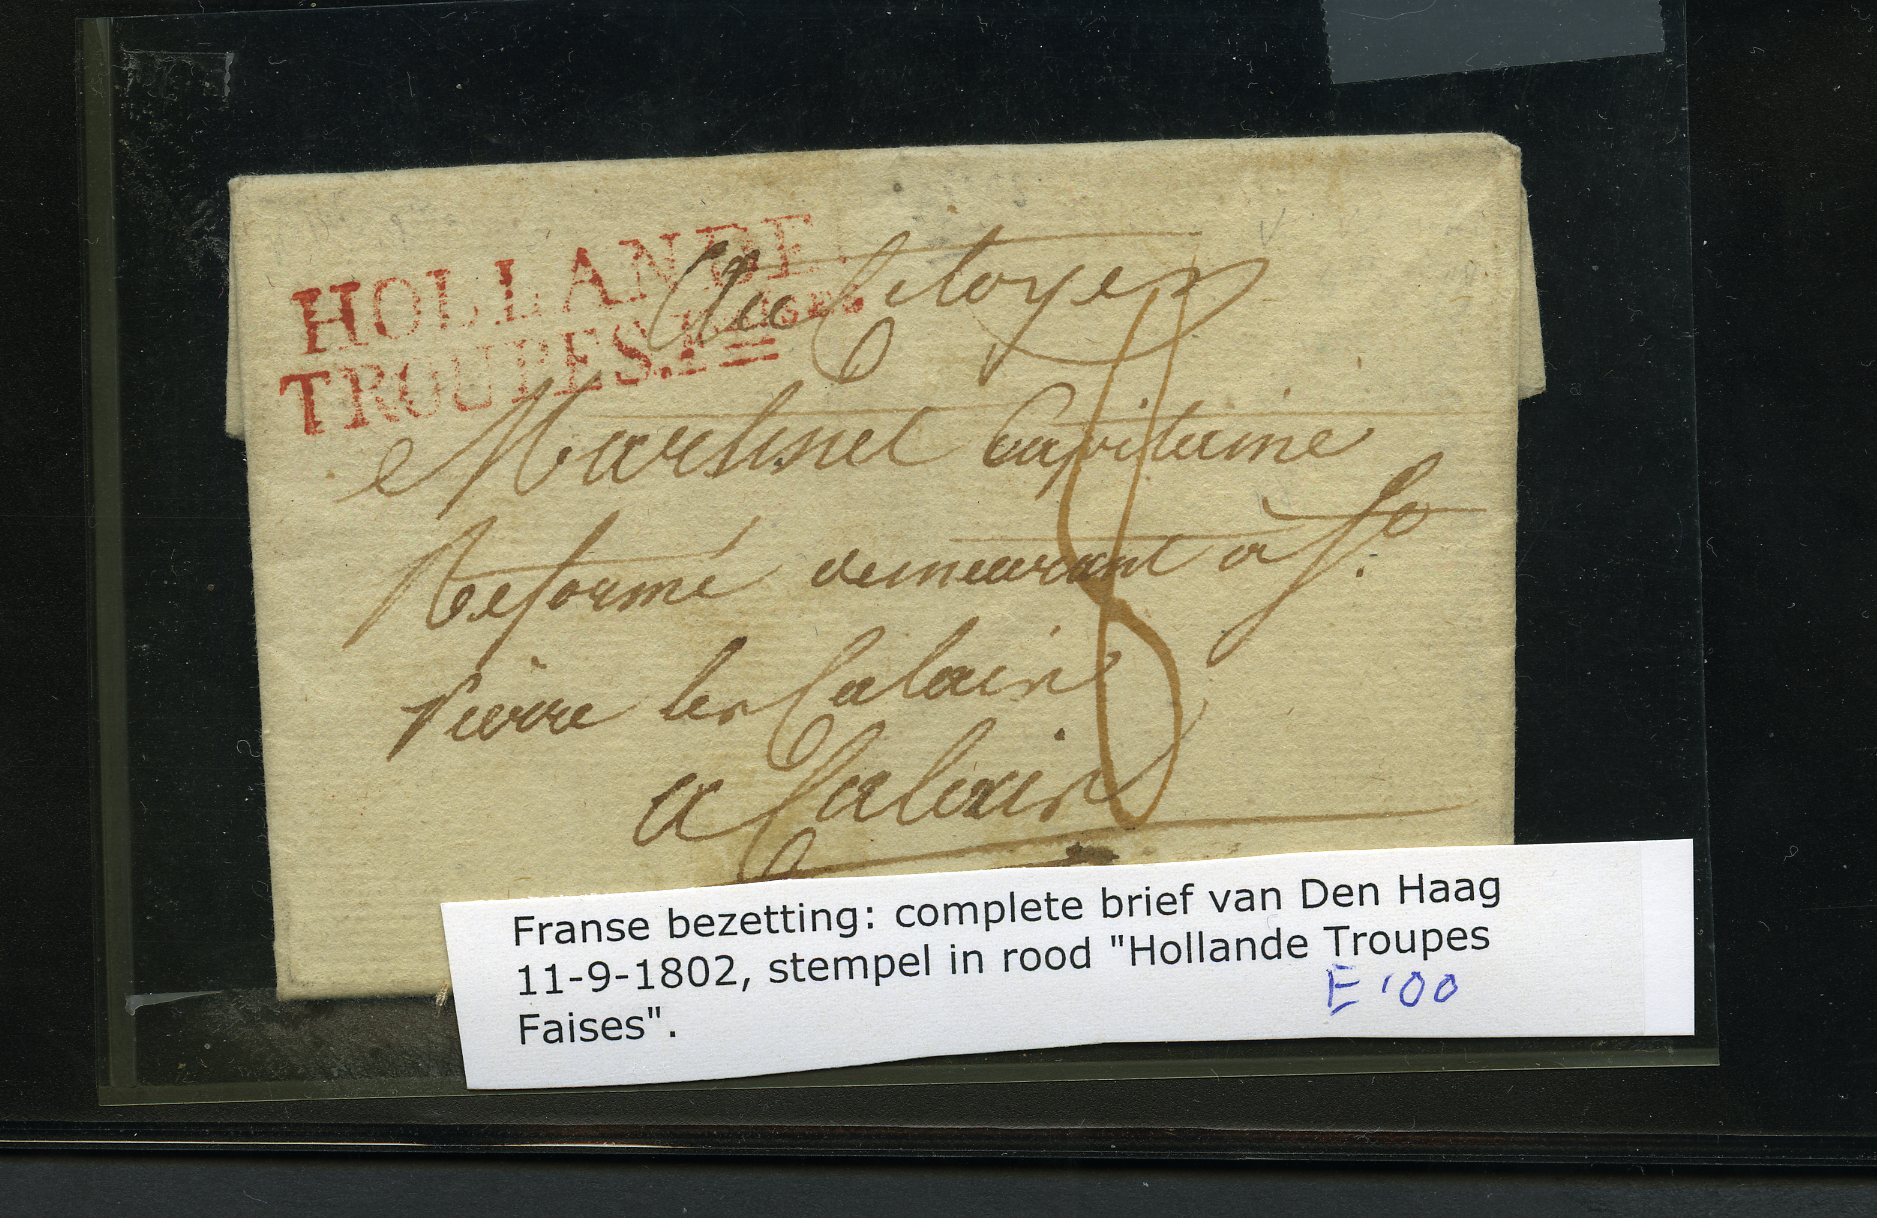 HOLLANDE.
TROUPES.F
Au Citoyen
Martinet Capitaine
Reformé demeurant à St
Pierre les Calais
a Calais
8
Franse bezetting: complete brief van Den Haag
11-9-1802, stempel in rood "Hollande Troupes
Faises".
E '00